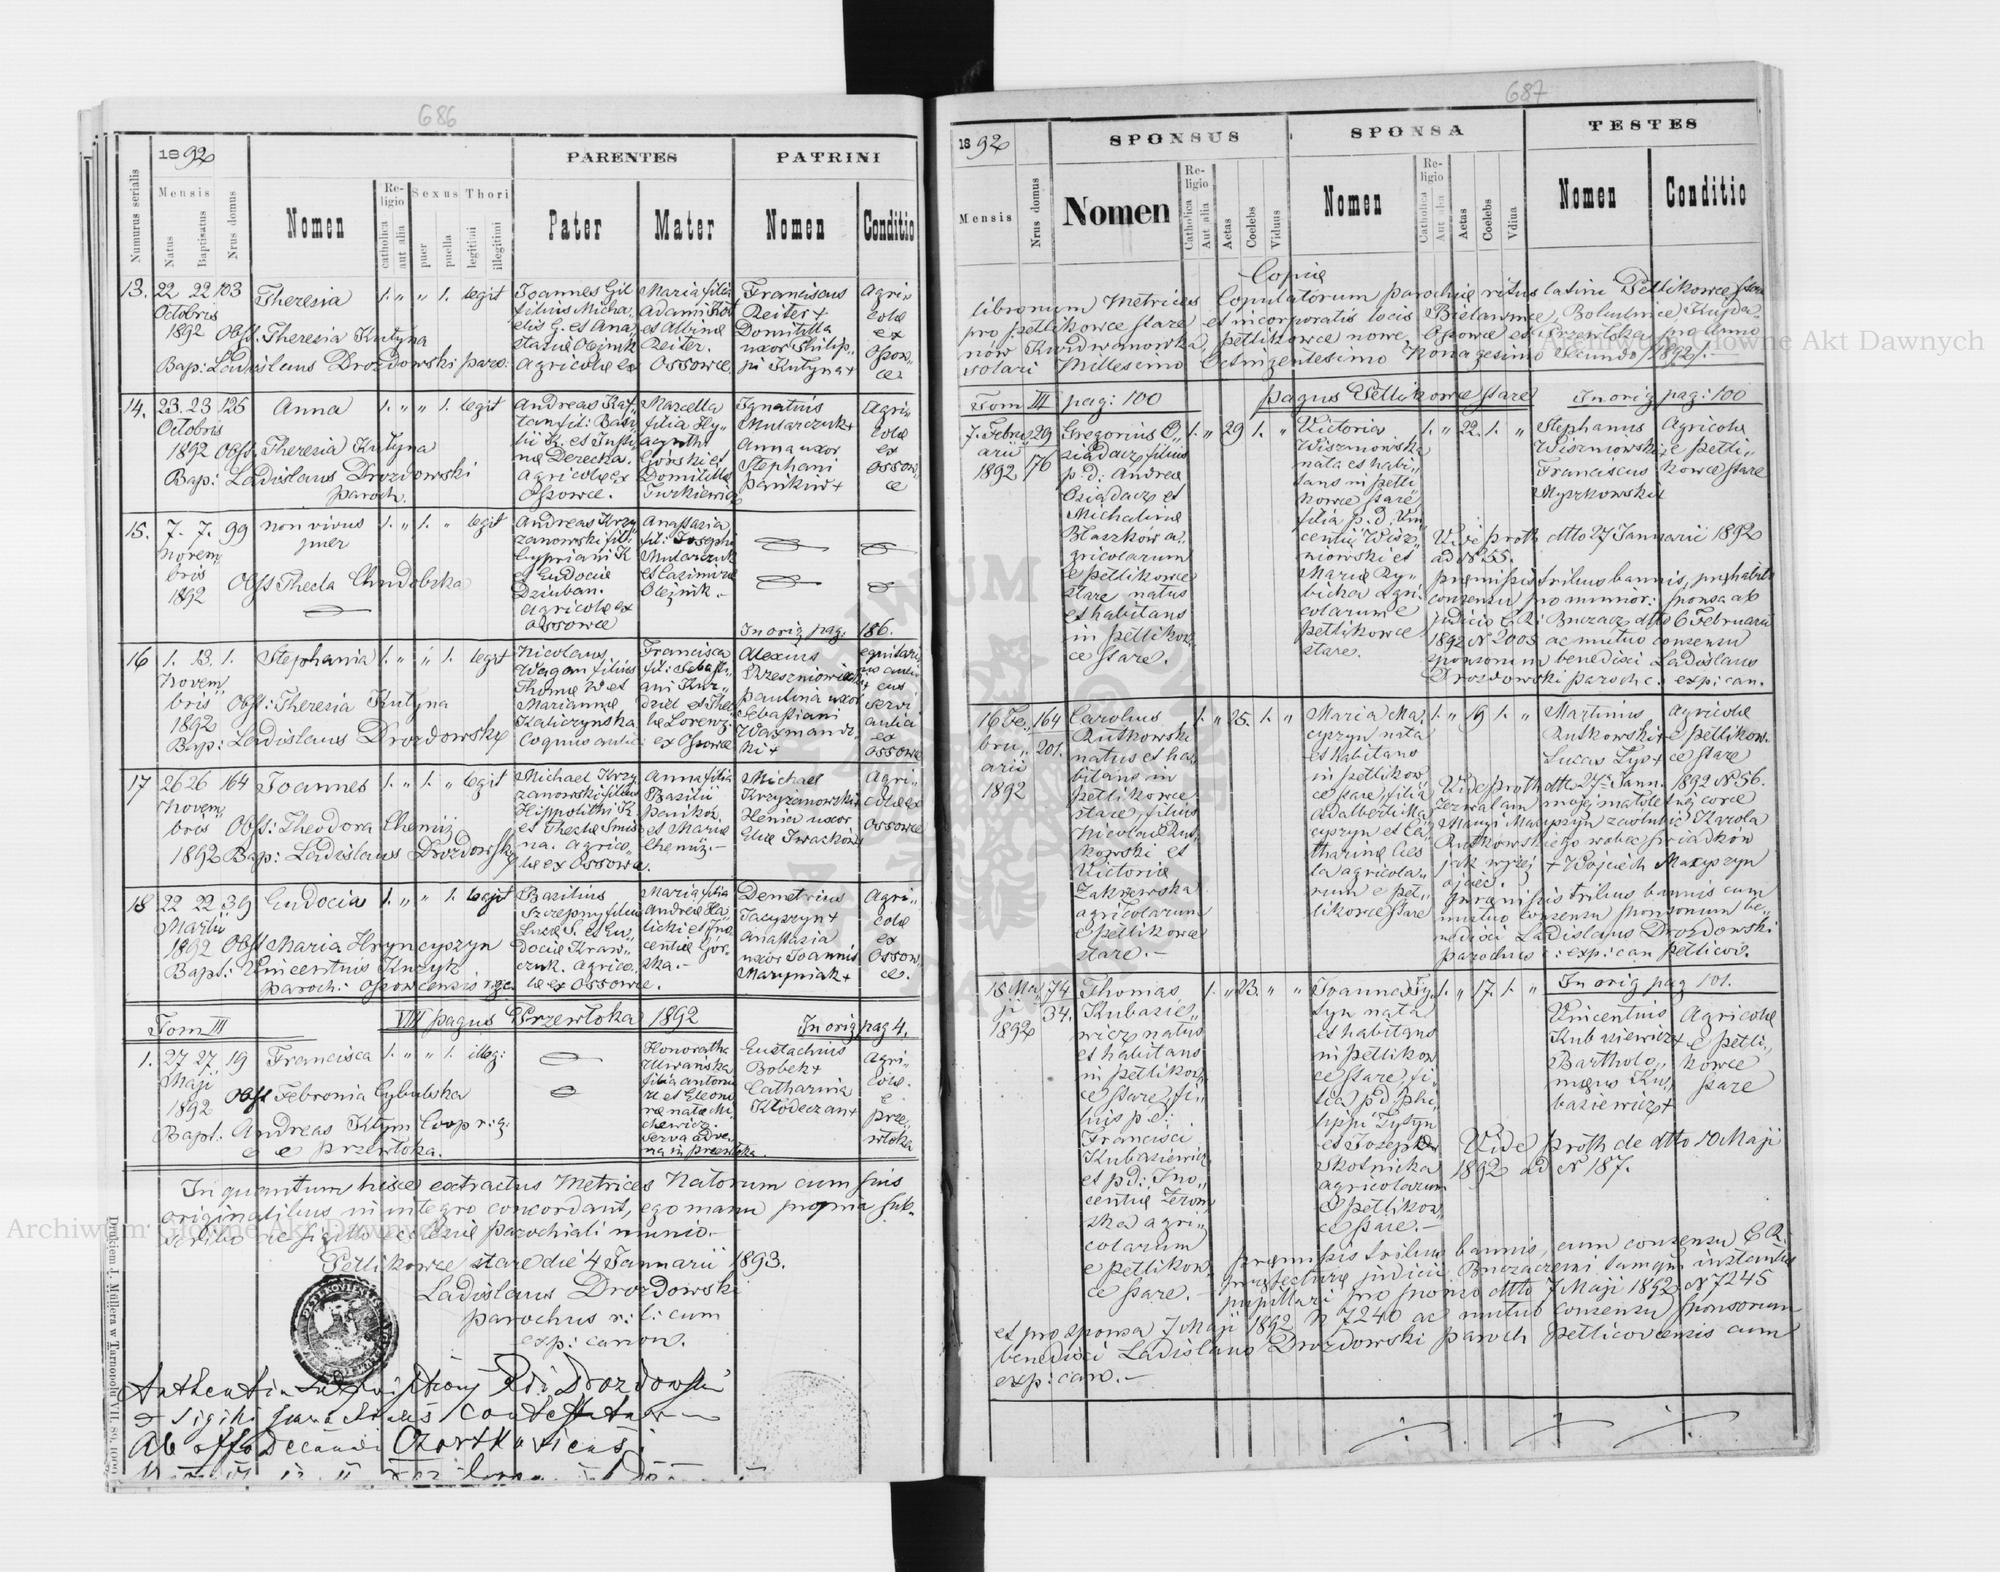 686
1892
PARENTES
PATRINI
Numurus serialis
Mensis
Natus
Baptisatus
Nrus domus
Nomen
Religio
catholica
aut alia
Sexus
puer
puella
Thori
legitimi
illegitimi
Pater
Mater
Nomen
Conditio
13. 22 22 103 Theresia 1. " " 1. legit
Octobris
1892 Obst: Theresia Kutyna
Bap: Ladislaus Drozdowski paro.
Joannes Gil
filius Micha,
elis G. et Ana,
stasiæ Olejnik
agricolæ ex
Maria filia
Adami
et Albinæ
Reiter.
Ossowce.
Franciscus
Reiter +
Domitilla
uxor Philip,
pi Kutyna +
Agri,
colæ
ex
Osow,
ce
14. 23. 23 126 Anna 1. " " 1. legit
Octobris
1892 Obst: Theresia Kutyna
Bap: Ladislaus Drozdowski
paroch.
Andreas
fil: Basi,
lii K. et Justi,
næ Derecka.
Agricolæ ex
Ossowce.
Marcella
filia Hy,
acynthi
Górski et
Domitillæ
Turkiewicz
Ignatius
Mularczuk +
Anna uxor
Stephani
Pankiw +
Agri,
colæ
ex
Ossow,
ce
15. 7. 7. 99 non vivus 1. " 1. " legit
puer
Novem,
bris
1892
Obst Thecla Chudobska
Andreas Krzy,
zanowski fil:
Cypriani K
et Eudociæ
Dziuban.
Agricolæ ex
Ossowce
Anastasia
fil: Josephi
Mularczuk
et Casimiræ
Olejnik.
In orig pag: 186.
16 1. 13. 1. Stephania 1. " " 1. legit
Novem,
bris Obst: Theresia Kutyna
1892
Bap: Ladislaus Drozdowski
Nicolaus
Wagan filius
Thomæ W et
Mariannæ
Kaliczynska
Coquus aulic:
Francisca
fil: Sebasti,
ani Kur,
dziel et The,
læ Lorenz.
ex Osowce
Alexius
Wreszniowicki
Paulina uxor
Sebastiani
Waxmandz,
ki +
servi
aulici
ex
Ossowce
17 26 26 164 Joannes 1. " 1. " legit
Novem,
bris Obst: Theodora Chemij
1892 Bap: Ladislaus Drozdowski
Michael Krzy,
zanowski filius
Hippolithi K
et Theclæ Smis
na. Agrico,
læ ex Ossowce.
Anna filia
Basilii
Pankow
et Mariæ
Chemij.
Michael
Krzyzanowski +
Xenia uxor
Eliæ Iwaskow
Agri,
colæ ex
Ossowce
18 22 22 39 Eudocia 1. " " 1. legit
Martii
1892 Obst Maria Hryncyszyn
Bapt: Vincentius Kuzyk
paroch: Osowcensis r. gr.
Basilius
Szczepny filius
Lucæ S. et Eu,
dociæ Kraw,
czuk. Agrico,
læ ex Ossowce.
Maria filia
Andreæ Ha,
licki et Ino,
centiæ Gór,
ska.
Demetrius
Jacyszyn +
Anastasia
uxor Joannis
Maryniak +
Agri,
colæ
ex
Ossow,
ce.
Tom III VIII pagus Przewłoka 1892 In orig pag 4.
1. 27 27 19 Francisca 1. " " 1. illeg:
Maji
1892 Obst Febronia Cybulska
Bapt: Andreas Kłym Coop r. g:
e Przewłoka.
Honoratha
Ulwańska
filia Antonii
et Eleono
ræ natæ Mi,
chewicz.
Serva adve,
na in Przewłoka.
Eustachius
Bobek +
Catharina
Kłodeczan +
Agri,
colæ
e
Prze,
włoka
In quantum hisce extractus Metrices Natorum cum suis
originalibus in integro concordant, ego manu propria sub,
scribo ac sigillo ecclesiæ parochiali munio.
Petlikowce stare die 4 Januarii 1893.
Ladislaus Drozdowski
parochus r: l: cum
exp: canon.
Rdi Drozdowski
Ab offo Decanali Czortkoviensi
Drukiem J. Müllera w Tarnopolu VII. 89, 1000
Archiwum Główne Akt Dawnych
687
1892
SPONSUS
SPONSA
TESTES
Mensis
Nrus domus
Nomen
Religio
Catholica
Aut alia
Aetas
Coelebs
Viduus
Nomen
Religio
Catholica
Aut alia
Aetas
Coelebs
Vidua
Nomen
Conditio
Copia
librorum Metrices Copulatorum parochiæ ritus latini Petlikowce stare
pro Petlikowce stare et incorporatis locis Bielawince, Bobulince, Kujda,
nów Kurdwanowka, Petlikowce nowe, Osowce et Przewłoka pro Anno
solari Millesimo Octingentesimo Nonagesimo Secundo /1892/.
Tom III pag: 100 pagus Petlikowce stare In orig pag: 100
7. Febru,
arii
1892
29
76
Gregorius O,
siadacz filius
p. d: Andreæ
Osiadacz et
Michalinæ
Błaszkow a,
gricolarum
e Petlikowce
stare natus
et habitans
in Petlikow,
ce stare.
1. " 29 1. "
Victoria
Wiszniowska
nata et habi,
tans in Petli
kowce stare
filia p. d. Vin
centii Wisz,
niowski et
Mariæ Ry,
bicka agri,
colarum e
Petlikowce
stare.
1. " 22. 1. "
Stephanus
Wiszniowski +
Franciscus
Myszkowski +
Agricolæ
e Petli,
kowce stare
Vide proth dtto 27 Januarii 1892
ad N 55.
præmissis tribus bannis, præhabito
consensu pro minor: sponsa ab
judicio C. R: Buczacz dtto 6 Februarii
1892 N 2005 ac mutuo consensu
sponsorum benedixi Ladislaus
Drozdowski paroch c: exp: can.
16 Fe,
bru,
arii
1892
164
201.
Carolus
Rutkowski
natus et ha,
bitans in
Petlikowce
stare, filius
Nicolai Rut,
kowski et
Victoriæ
Zakrzewska
agricolarum
e Petlikowce
stare.
1. " 25. 1. "
Maria Ma,
cyszyn nata
et habitans
in Petlikow,
ce stare, filia
Adalberti Ma,
cyszyn et Ca,
tharinæ Cies
la agricola,
rum e Pet,
likowce stare
1. " 19 1. "
Martinus
Rutkowski +
Lucas Tys +
Agricolæ
e Petlikow,
ce stare
Vide proth dtto 27 Jann. 1892 N 56.
Zezwalam mojej małoletniej córce
Maryi Macyszyn zaślubić Karola
Rutkowskiego wobec świadków
jak wyżej + Wojciech Macyszyn
ojciec.
præmissis tribus bannis cum
mutuo consensu sponsorum be,
nedixi Ladislaus Drozdowski
parochus c: exp: can Petlicov.
18 Ma,
ji
1892
74
34.
Thomas
Kubasie,
wicz natus
et habitans
in Petlikow,
ce stare, fi,
lius p. d:
Francisci
Kubasiewicz
et p d: Ino,
centiæ Zerom
ska agri,
colarum
e Petlikow,
ce stare.
1. " 23. " "
Joanna Ty,
syn nata
et habitans
in Petlikow
ce stare, fi,
lia p d Phi,
lippi Tysyn
et Josephæ
Skotnicka
agricolarum
e Petlikow,
ce stare.
1. " 17. 1. "
In orig pag 101.
Vincentius
Kubasiewicz +
Bartholo,
mæus Ku,
basiewicz +
Agricolæ
e Petli,
kowce
stare
Vide proth de dtto 10 Maji
1892 ad N 187.
præmissis tribus bannis, cum consensu C. R.
præfecturæ judicii Buczacensi tamqu instantiæ
pupillari pro sponso dtto 7 Maji 1892 N 7245
et pro sponsa 7 Maji 1892 N 7240 ac mutuo consensu sponsorum
benedixi Ladislaus Drozdowski paroch Petlicoviensis cum
exp: can.
Archiwum Główne Akt Dawnych